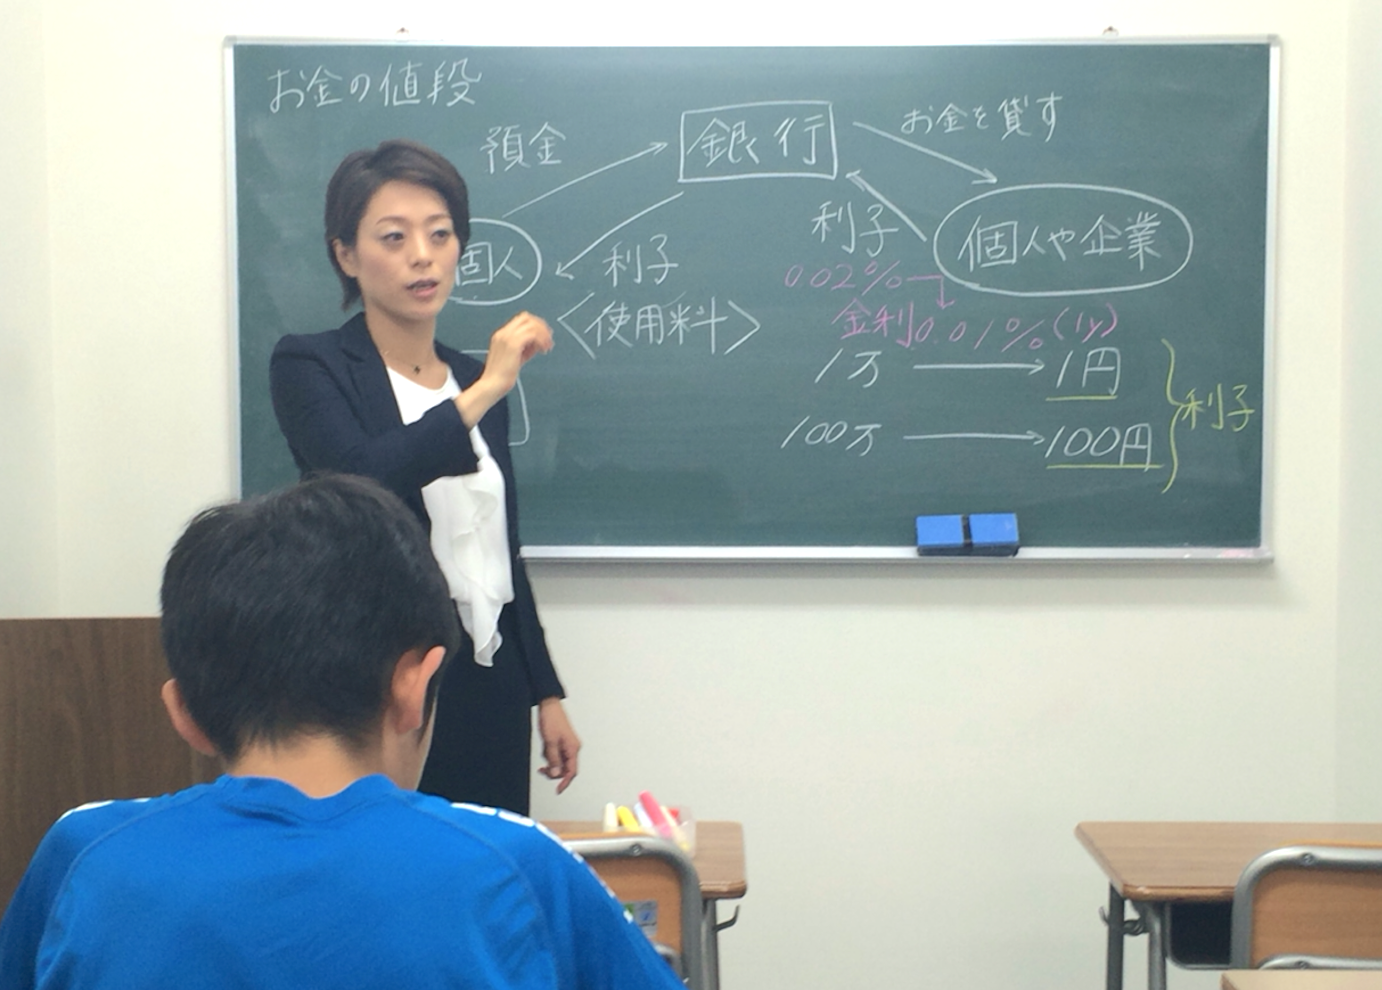 お金の値段
預金
銀行
お金を貸す
個人
利子
<使用料>
利子
個人や企業
0.02%
金利0.01%(1y)
1万 → 1円
100万 → 100円
利子